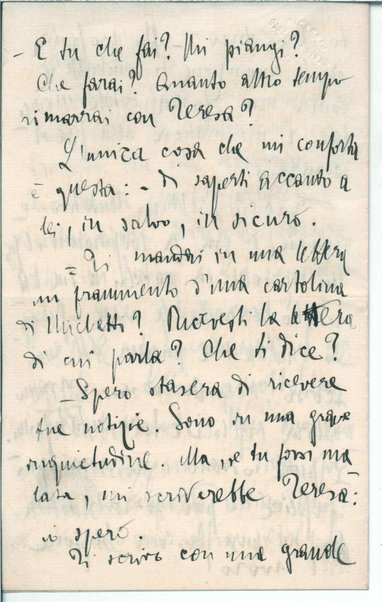 - E tu che fai? Mi piangi?
Che farai? Quanto altro tempo
rimarrai con Teresa?
L'unica cosa che mi conforta
è questa: - di saperti accanto a
lei, in salvo, in sicuro.
- Ti mandai in una lettera
un frammento d'una cartolina
di Michetti? Ricevesti la lettera
di cui parla? Che ti dice?
- Spero stasera di ricevere
tue notizie. Sono in una grave
inquietudine. Ma se tu fossi ma
lata, mi scriverebbe Teresa:
io spero
Ti scrivo con una grande